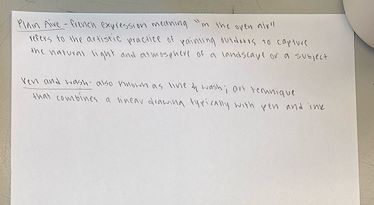 Plain Aire - French expression meaning "in the open air"
refers to the artistic practice of painting outdoors to capture
the natural light and atmosphere of a landscape or a subject
Pen and wash - also known as line & wash; art technique
that combines a linear drawing typically with pen and ink